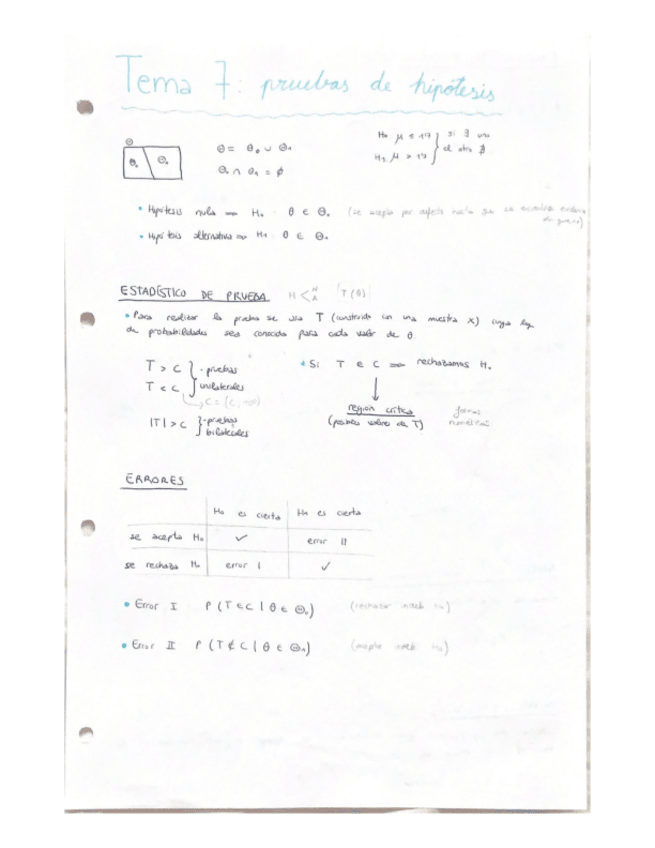 Tema 7: pruebas de hipótesis
Θ
Θ₀ Θ₁
Θ = Θ₀ ∪ Θ₁
Θ₀ ∩ Θ₁ = ∅
H₀ μ ≤ 17 } si ∃ uno
H₁ μ > 17 } el otro ∄
• Hipótesis nula ⇒ H₀ θ ∈ Θ₀ (se acepta por defecto hasta que se encuentra evidencia
• Hipótesis alternativa ⇒ H₁ θ ∈ Θ₁
ESTADÍSTICO DE PRUEBA H < N A T(θ)
• Para realizar la prueba se usa T (construido con una muestra X) cuya ley
de probabilidades sea conocida para cada valor de θ.
T > C } - pruebas
T < C } unilaterales
C = (c, +∞)
|T| > C } - pruebas
bilaterales
• Si T ∈ C ⇒ rechazamos H₀
↓
región crítica
(posibles valores de T)
numéricas
ERRORES
H₀ es cierta H₁ es cierta
se acepta H₀ ✓ error II
se rechaza H₀ error I ✓
• Error I P(T ∈ C | θ ∈ Θ₀) (rechazar H₀)
• Error II P(T ∉ C | θ ∈ Θ₁) (aceptar H₀)